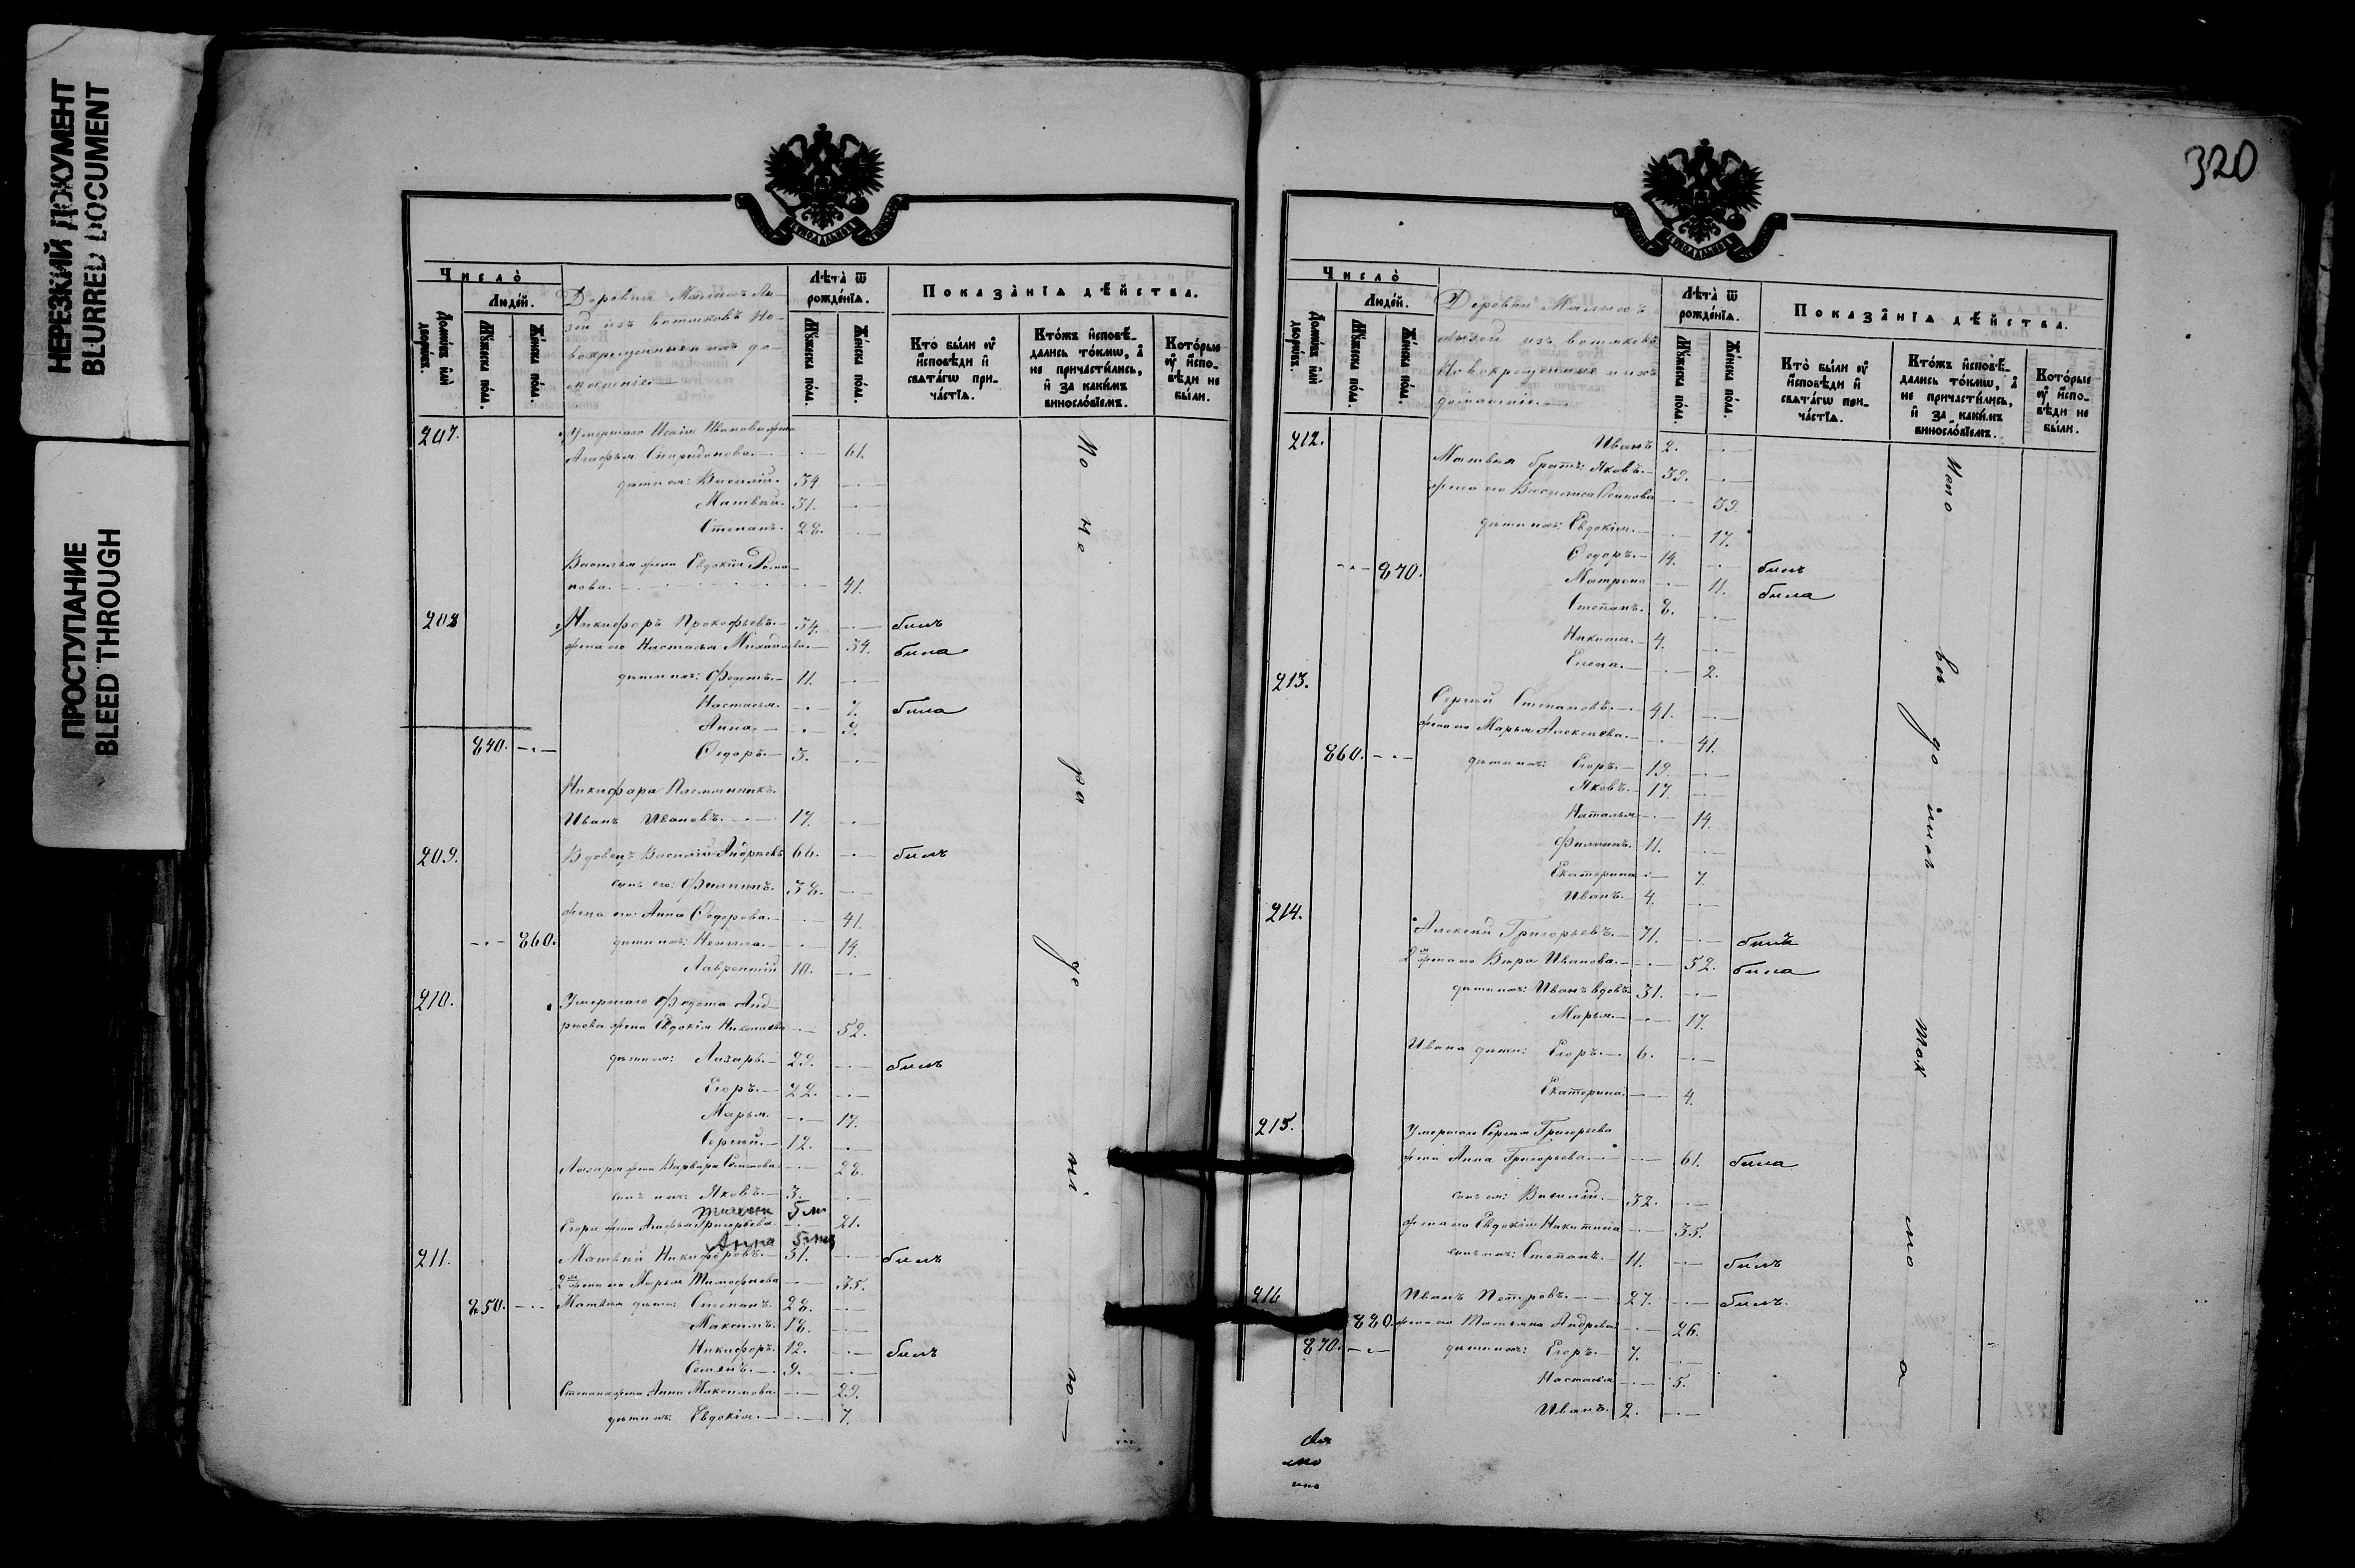 НЕРЕЗКИЙ ДОКУМЕНТ
BLURRED DOCUMENT
ПРОСТУПАНИЕ
BLEED THROUGH
Число̀
Людей.
Домѡвъ или дворовъ.
Мужеска пола.
Женска пола.
Деревни Малыхъ
изъ вотяковъ Но-
вокрещенныи ихъ до-
машніе
Лѣта̀ ѿ рожденїѧ.
Мужеска пола.
Женска пола.
Показанїѧ дѣйства.
Кто были оу исповѣди и свѧтагѡ причастїѧ.
Ктожъ исповѣдались токмѡ, а не причастились, и за какимъ винословїемъ.
Которые оу исповѣди не были.
207. Умершаго Исаія Иванова жена
Агафья Спиридонова. 61.
дѣти ея: Василій. 34
Матвѣй. 31.
Степанъ. 28.
Василья жена Евдокія Рома-
нова. 41.
208 Никифоръ Прокофьевъ. 34. былъ
жена его Настасья Михайлова. 34. была
дѣти ихъ: Федотъ. 11.
Настасья. 7. была
Анна. 9.
840. Ѳедоръ. 3.
Никифора Племянникъ.
Иванъ Ивановъ. 17.
209. Вдовецъ Василій Андреевъ 66. былъ
сынъ его: Филиппъ. 38.
жена его: Анна Ѳедорова. 41.
860. дѣти ихъ: Ненила. 14.
Лаврентій 10.
210. Умершаго Федота Анд-
реева жена Евдокія Николаева 52.
дѣти ея: Лазарь. 29. былъ
Егоръ. 22.
Марья. 17.
Сергѣй. 12.
Лазаря жена Варвара Семенова. 28.
сынъ ихъ: Яковъ. 3.
5 м
Егора жена Агафья Григорьева. 21.
Анна 5 м
211. Матвѣй Никифоровъ. 51. былъ
2я жена его Марья Тимофеева 35.
850. Матвѣя дѣти: Степанъ. 28.
Максимъ. 18.
Никифоръ. 12. былъ
Семенъ. 9.
Степана жена Анна Максимова. 29.
дѣти ихъ: Евдокія. 7.
По не ра де ні ю
320
Число̀
Людей.
Домѡвъ или дворовъ.
Мужеска пола.
Женска пола.
Деревни Малыхъ
изъ вотяковъ
Новокрещенные ихъ
домашніе.
Лѣта̀ ѿ рожденїѧ.
Мужеска пола.
Женска пола.
Показанїѧ дѣйства.
Кто были оу исповѣди и свѧтагѡ причастїѧ.
Ктожъ исповѣдались токмѡ, а не причастились, и за какимъ винословїемъ.
Которые оу исповѣди не были.
212. Иванъ 2.
Матвѣя братъ: Яковъ. 39.
жена его Василиса Осипова 39.
дѣти ихъ: Евдокія. 17.
Ѳедоръ. 14. былъ
870. Матрена 11. была
Степанъ. 8.
Никита. 4.
Елена. 2.
213. Сергѣй Степановъ. 41.
жена его Марья Алексѣева. 41.
860. дѣти ихъ: Егоръ. 19.
Яковъ. 17.
Наталья 14.
Филиппъ. 11.
Екатерина 7.
Иванъ. 4.
214. Алексѣй Григорьевъ. 71. былъ
2я жена его Вѣра Иванова. 52. была
дѣти ихъ: Иванъ вдовъ 31.
Марья. 17.
Ивана дѣти: Егоръ. 6.
Екатерина. 4.
215. Умершаго Сергѣя Григорьева
жена Анна Григорьева. 61. была
сынъ ея: Василій. 32.
жена его Евдокія Никитина 35.
сынъ ихъ: Степанъ. 11. былъ
216 Иванъ Петровъ. 27. былъ.
880. жена его Татьяна Андреева 26.
870. дѣти ихъ: Егоръ. 7.
Настасья 5.
Иванъ. 2.